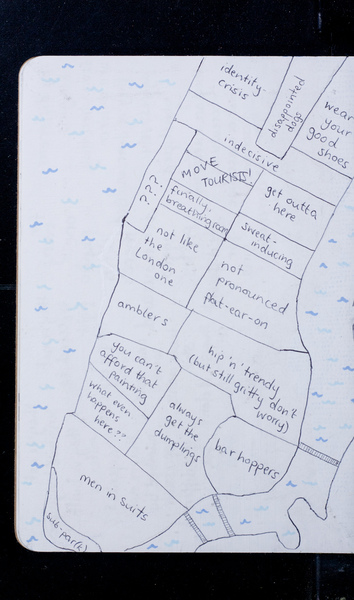 identity-
crisis
disappointed
dogo
wear
your
good
shoes
indecisive
MOVE
TOURISTS!
get outta
here
? ? ?
finally-
breathing room
sweat-
inducing
not like
the
London
one
not
pronounced
flat-ear-on
amblers
hip 'n' trendy
(but still gritty don't
worry)
you can't
afford that
painting
what even
happens
here??
always
get the
dumplings
bar hoppers
men in suits
sub-par(k)